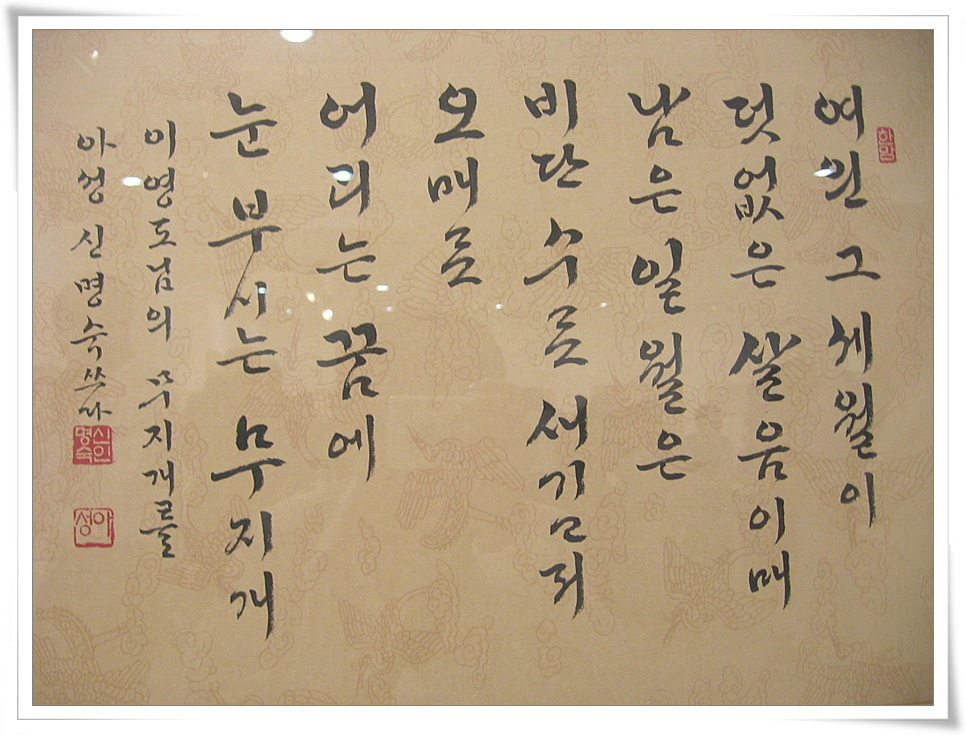 한맘
여읜 그 세월이
덧없은 살움이매
남은 일월은
비단 수로 새기고져
오매로
어리는 꿈에
눈 부시는 무지개
이영도님의 무지개를
아성 신명숙 쓰다
신인명숙
아성